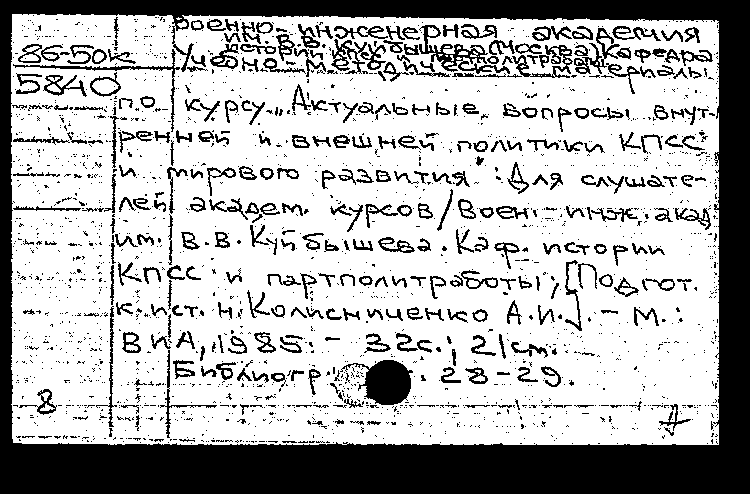 Военно-инженерная академия
им. В.В. Куйбышева (Москва). Кафедра
истории КПСС и партполитработы.
86-50к Учебно-методические материалы
5840
по курсу „Актуальные вопросы внут-
ренней и внешней политики КПСС
и мирового развития": Для слушате-
лей академ. курсов/Воен.-инж. акад.
им. В.В. Куйбышева. Каф. истории
КПСС и партполитработы; [Подгот.
к. ист. н. Колисниченко А.И.]. - М.:
ВИА, 1985. - 32с.; 21см.
Библиогр.: 28-29.
8